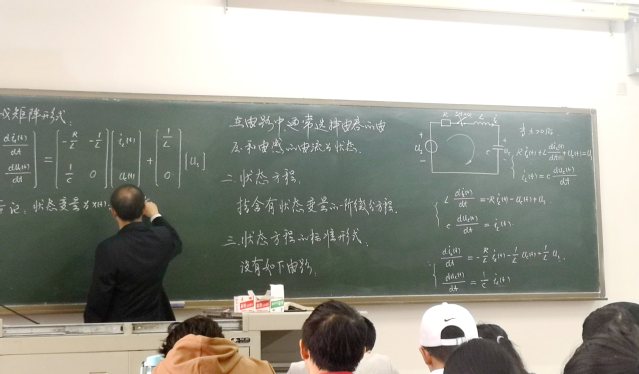 成矩阵形式:
[di_L(t)/dt; du_c(t)/dt] = [-R/L -1/L; 1/C 0] [i_L(t); u_c(t)] + [1/L; 0] [u_1]
记:状态变量为x(t)
在电路中通常选择电容的电
压和电感的电流为状态.
二.状态方程.
指含有状态变量的一阶微分方程.
三.状态方程的标准形式.
设有如下电路.
R L
+ u_1 -
C + u_c -
当t≥0时
R i_L(t)+L di_L(t)/dt+u_c(t)=u_1
i_L(t)=C du_c(t)/dt
L di_L(t)/dt=-R i_L(t)-u_c(t)+u_1
C du_c(t)/dt=i_L(t)
di_L(t)/dt=-R/L i_L(t)-1/L u_c(t)-1/L u_1
du_c(t)/dt=1/C i_L(t)